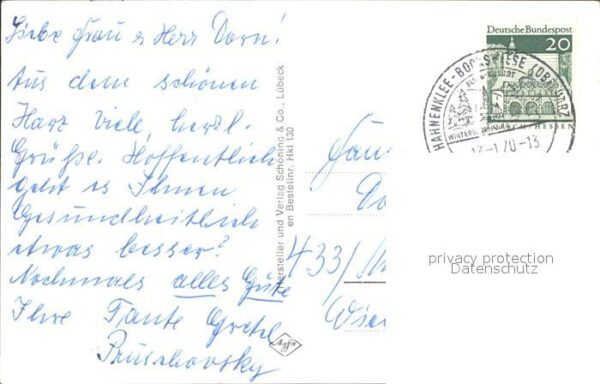 Liebe Frau & Herr Dorn!
Aus dem schönen
Harz viele, herzl.
Grüße. Hoffentlich
geht es Ihnen
Gesundheitlich
etwas besser?
Nochmals alles Gute
Ihre Tante Gretel
Pruschovsky
Hersteller und Verlag Schöning & Co., Lübeck
en Bestellnr. Hkl 130
Deutsche Bundespost
20
HAHNENKLEE-BOCKSWIESE (OBERHARZ)
LORSCH/HESSEN
13-1.70-13
433/
privacy protection
Datenschutz